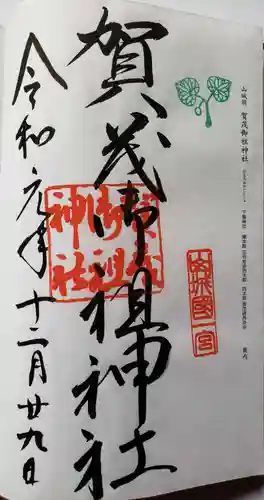 山城國 賀茂御祖神社
山城國一宮
賀茂御祖神社
賀茂御祖神社
令和元年十二月廿九日